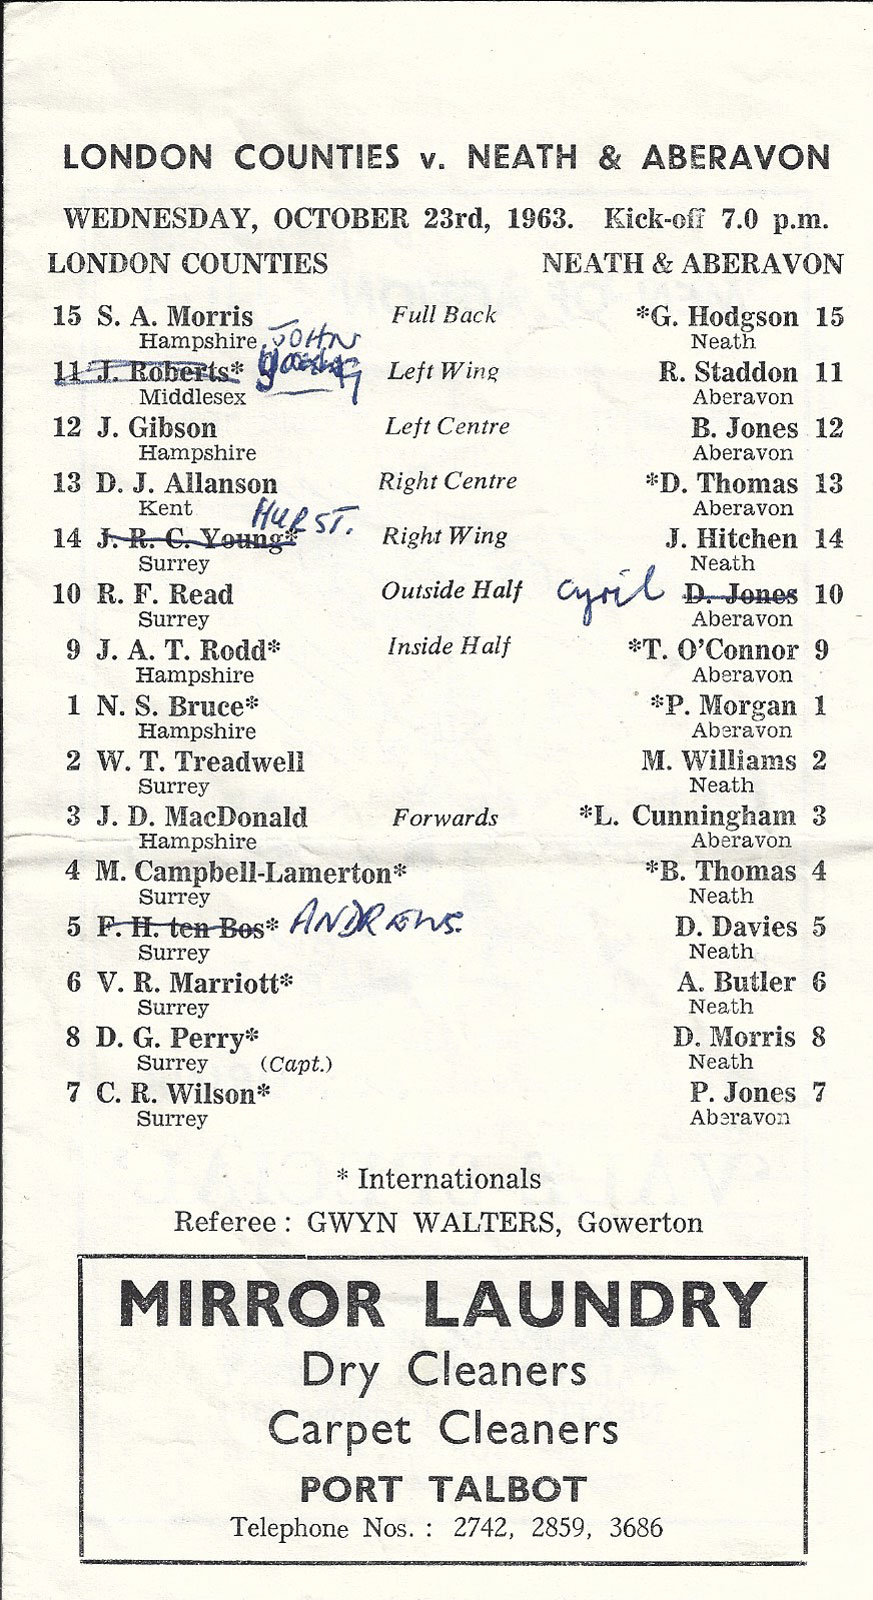 LONDON COUNTIES v. NEATH & ABERAVON
WEDNESDAY, OCTOBER 23rd, 1963. Kick-off 7.0 p.m.
LONDON COUNTIES NEATH & ABERAVON
15 S. A. Morris Full Back *G. Hodgson 15
Hampshire JOHN Neath
11 J. Roberts* Left Wing R. Staddon 11
Middlesex Aberavon
12 J. Gibson Left Centre B. Jones 12
Hampshire Aberavon
13 D. J. Allanson Right Centre *D. Thomas 13
Kent HURST. Aberavon
14 J. R. C. Young* Right Wing J. Hitchen 14
Surrey Neath
10 R. F. Read Outside Half Cyril D. Jones 10
Surrey Aberavon
9 J. A. T. Rodd* Inside Half *T. O'Connor 9
Hampshire Aberavon
1 N. S. Bruce* *P. Morgan 1
Hampshire Aberavon
2 W. T. Treadwell M. Williams 2
Surrey Neath
3 J. D. MacDonald Forwards *L. Cunningham 3
Hampshire Aberavon
4 M. Campbell-Lamerton* *B. Thomas 4
Surrey Neath
5 F. H. ten Bos* ANDREWS. D. Davies 5
Surrey Neath
6 V. R. Marriott* A. Butler 6
Surrey Neath
8 D. G. Perry* D. Morris 8
Surrey (Capt.) Neath
7 C. R. Wilson* P. Jones 7
Surrey Aberavon
* Internationals
Referee : GWYN WALTERS, Gowerton
MIRROR LAUNDRY
Dry Cleaners
Carpet Cleaners
PORT TALBOT
Telephone Nos. : 2742, 2859, 3686